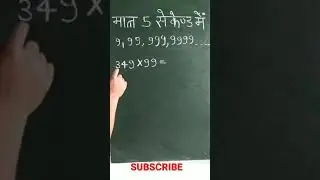 मात्र 5 सेकेण्ड में
9, 99, 999, 9999.....
349×99=
SUBSCRIBE